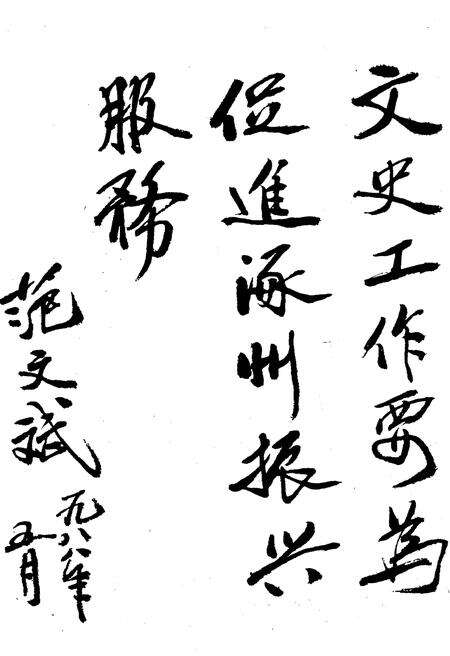 文史工作要為
促進涿州振兴
服務
范文斌
九八八年
五月